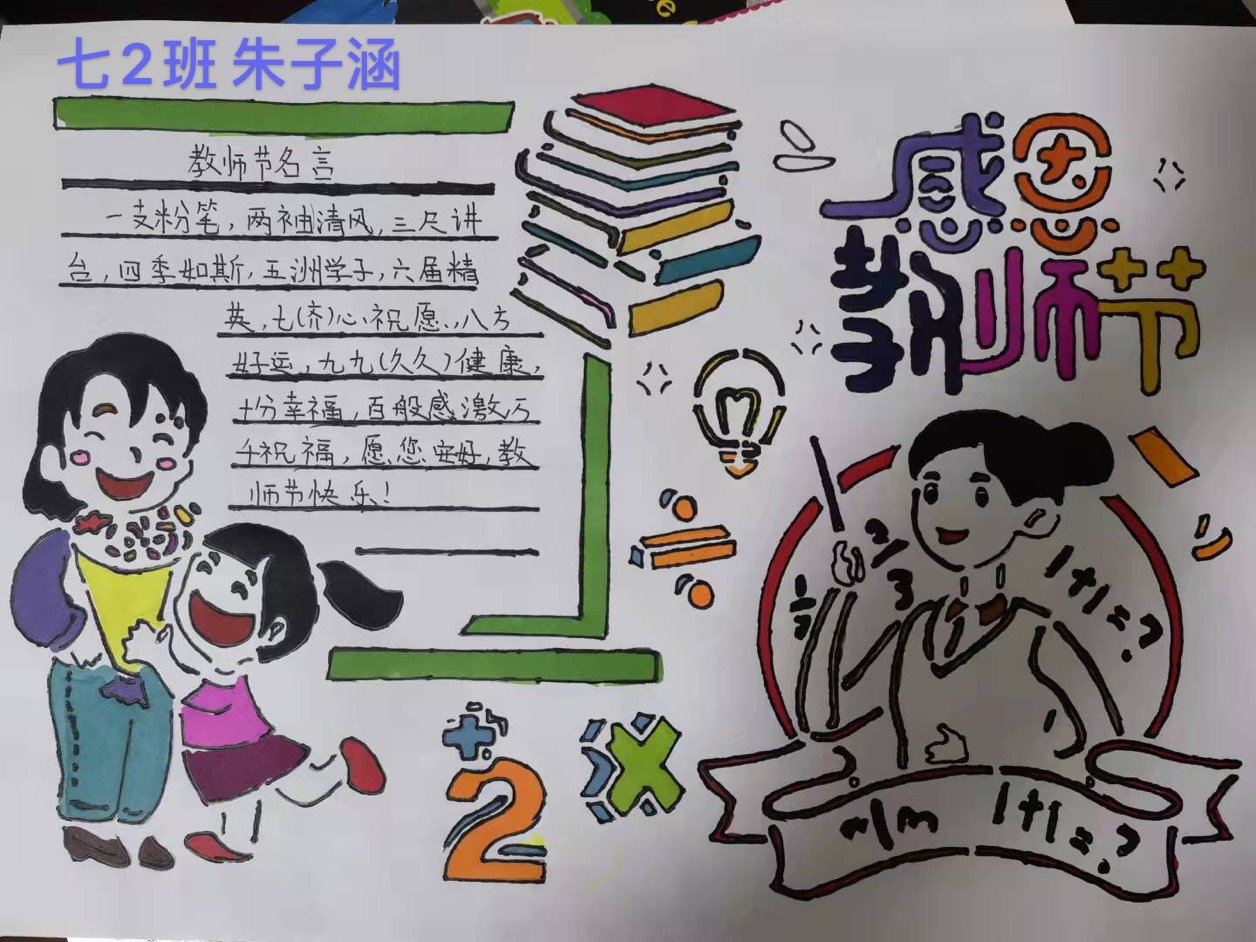 七2班 朱子涵
教师节名言
一支粉笔,两袖清风,三尺讲
台,四季如斯,五洲学子,六届精
英,七(齐)心祝愿,八方
好运,九九(久久)健康,
十份幸福,百般感激万
千祝福,愿您安好,教
师节快乐!
感恩
教师节
2/3
1/2
1+1=?
1+1=?
+
2
×
÷